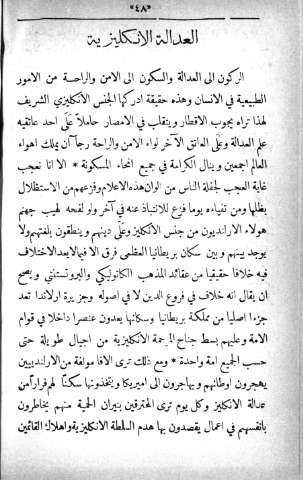 «٤٨»
العدالة الانكليزية
الركون الى العدالة والسكون الى الامن والراحة من الامور
الطبيعية في الانسان وهذه حقيقة ادركها الجنس الانكليزي الشريف
لهذا تراه يجوب الاقطار ويتقلب في الامصار حاملاً على احد عاتقيه
علم العدالة وعلى العاتق الآخر لواء الامن والراحة رجآ ان يملك اهواء
العالم اجمعين وينال الكرامة في جميع انحاء المسكونة * الا انا نعجب
غاية العجب لجفلة الناس من الوان هذه الاعلام وفزعهم من الاستظلال
بظلها ومن تفياءه يوما فزع للانتباذ عنه في آخر ولو لفحه لهيب جهنم
هولاء الارلنديون من جنس الانكليز وعلى دينهم وينطقون بلغتهم ولا
يوجد بينهم وبين سكان بريطانيا العظمى فرق الا فيما لا يعد الاختلاف
فيه خلافا حقيقيا من عقائد المذهب الكاثوليكي والبروتستاني ويصح
ان يقال انه خلاف في فروع الدين لا في اصوله وجزيرة ارلاندا تعد
جزءا اصليا من مملكة بريطانيا وسكانها يعدون عنصرا داخلا في قوام
الامة وعليهم بسط جناح الرحمة الانكليزية من اجيال طويلة حتى
حسب الجميع امة واحدة * ومع ذلك ترى الافا مولفة من الارلنديين
يهجرون اوطانهم ويهاجرون الى اميريكا ويتخذونها سكناً لهم فرارا من
عدالة الانكليز وكل يوم ترى المحترقين بنيران الحمية منهم يخاطرون
بانفسهم في اعمال يقصدون بها هدم السلطة الانكليزية واهلاك القائمين